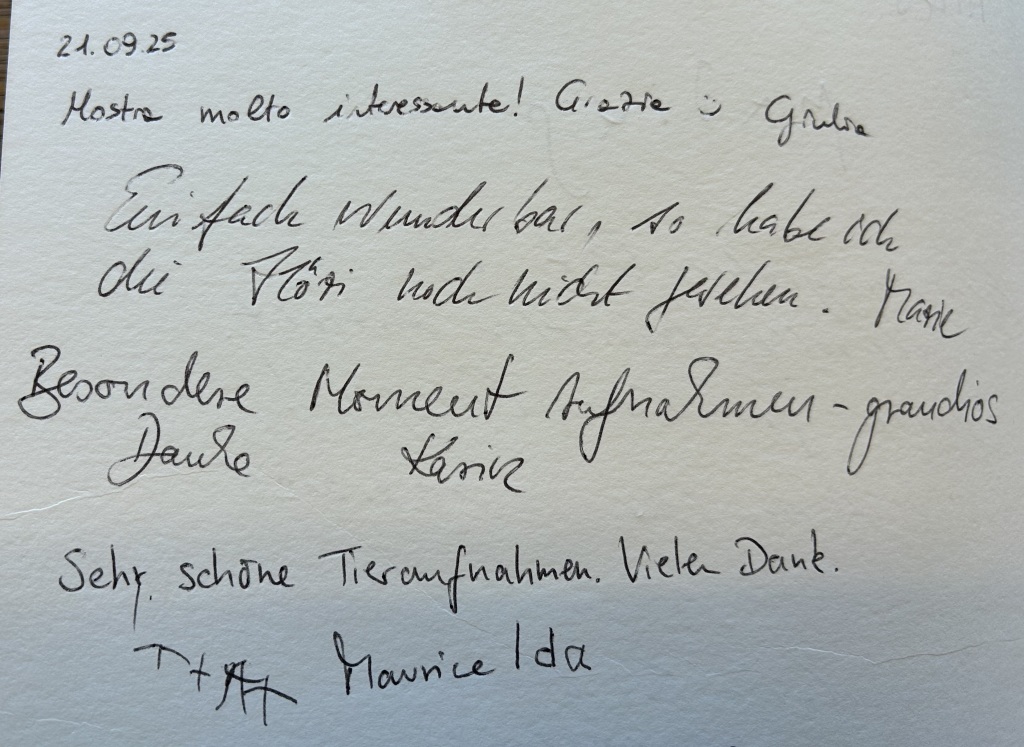 21.09.25
Mostra molto interessante! Grazie :) Giulia
Einfach wunderbar, so habe ich
die noch nicht gesehen. Marie
Besondere Moment Aufnahmen - grandios
Danke
Sehr schöne Tieraufnahmen. Vielen Dank.
Maurice Ida